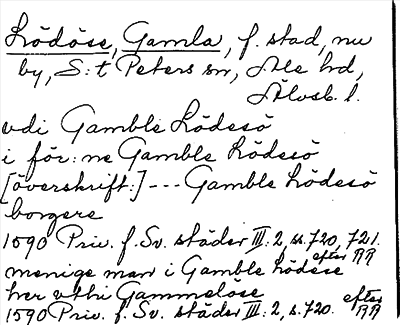 Lödöse, Gamla, f. stad, nu
by, S:t Peters sn, Ale hd,
Älvsb. l.
vdi Gamble Lödesö
i för:ne Gamble Lödesö
[överskrift:] --- Gamble Lödesö
borgere
1590 Priv. f. Sv. städer III:2, ss. 720, 721.
efter RR
menige man i Gamble Lödese
her vthi Gammelöse
1590 Priv. f. Sv. städer III:2, s. 720. efter RR